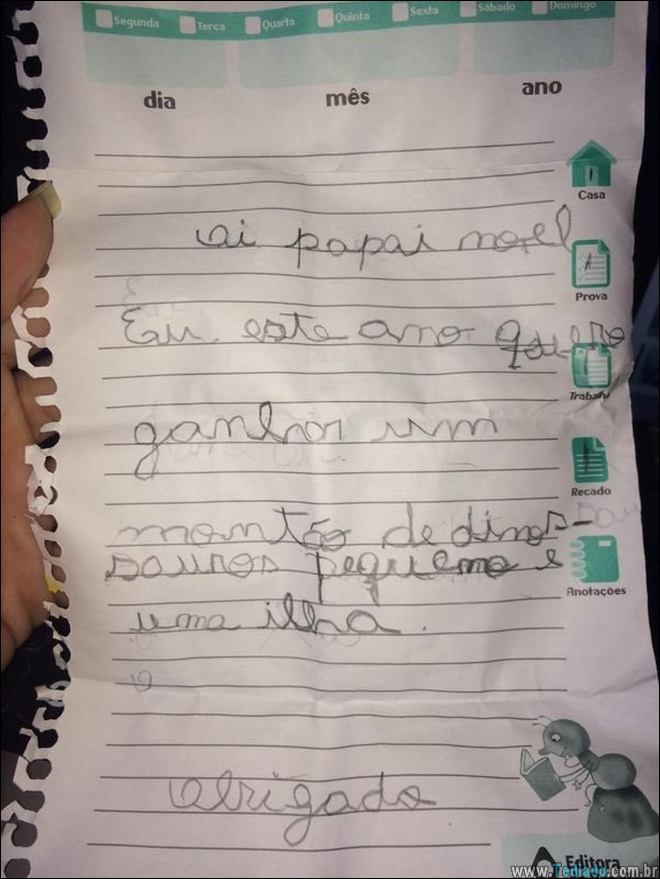 Segunda Terça Quarta Quinta Sexta Sábado Domingo
dia mês ano
Casa
oi papai noel
Prova
Eu este ano quero
Trabalho
ganhor um
Recado
montão de dinos-
sauros pequeno e
Anotações
uma ilha.
obrigado
Editora
www.Tediado.com.br